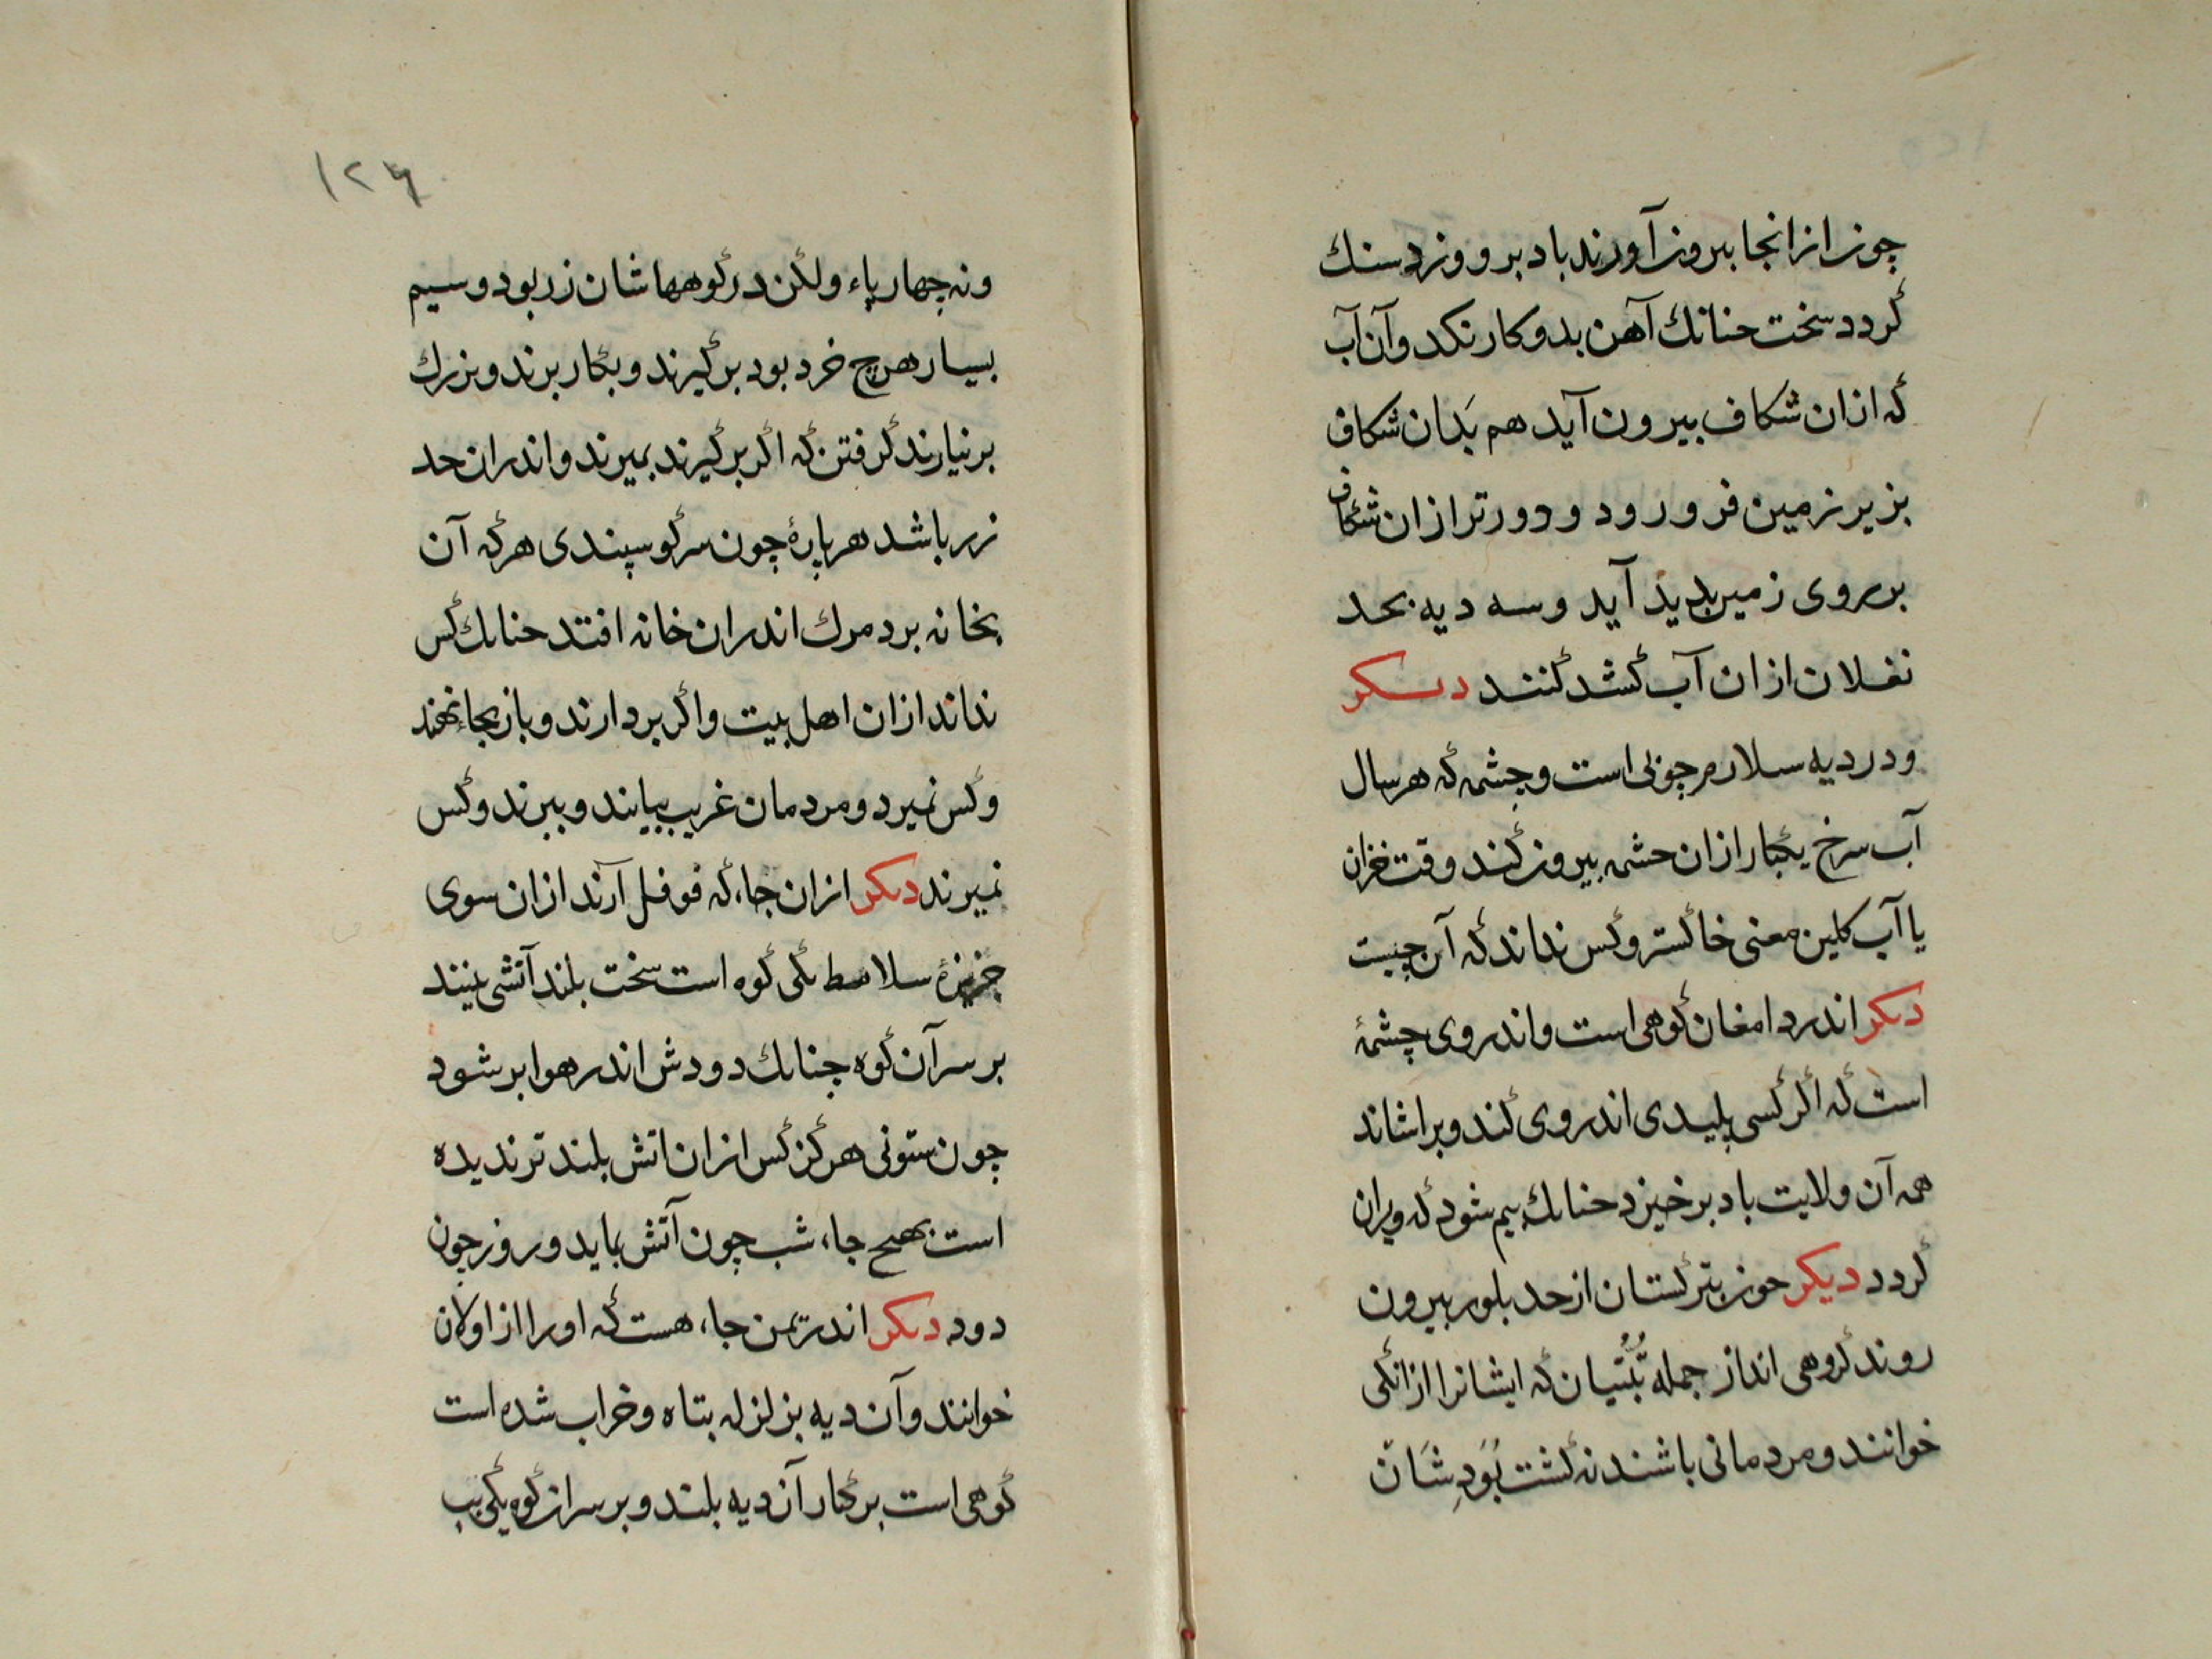 چون از انجا بیرون آورند باد برو وزد سنك
گردد سخت حنانك آهن بدو کار نکد وآن آب
که ازان شکاف بیرون آید هم بَدان شکاف
بزیر زمین فرو رود و دورتر ازان شکاف
بر روی زمین بدید آید وسه دیه بحد
نغلان ازان آب کشد کنند دیکر
ودر دیه سلارم جوئی است وچشمه که هر سال
آب سرخ یکبار ازان حشمه بیرون کند وقت خزان
یا آب کلین معنی خاکستر وکس نداند که آن چیست
دیکر اندر دامغان کوهی است واندر وی چشمهٔ
است که اگر کسی پلیدی اندر وی کند وبراشاند
همه آن ولایت باد برخیزد حنانك بیم شود که ویران
گردد دیکر حون بترکستان از حد بلور بیرون
روند کروهی اند از جمله تُبُّتیان که ایشانرا ازانکی
خوانند ومردمانی باشند نه کشت بَوَدِشَان
۱۲۶
ونه چهارپاء ولکن در کوهها شان زر بود وسیم
بسیار هرچ خرد بود برکیرند وبکار برند وبزرك
برنیارند کرفتن که اگر برکیرند بمیرند واندران حد
زر باشد هر پارهٔ چون سر کوسپندی هر که آن
بخانه برد مرك اندران خانه افتد حنانك کس
نداند ازان اهل بیت واگر بردارند وباز بجاء نهند
وکس نمیرد ومردمان غریب بیایند وببرند وکس
نمیرند دیکر ازان جاء که فوفل آرند ازان سوی
جزیرهٔ سلاهط یکی کوه است سخت بلند آتشی بینند
بر سر آن کوه چنانك دودش اندر هوا بر شود
چون ستونی هرکز کس ازان اتش بلند تر ندیده
است بهیچ جاء شب چون آتش نماید وروز چون
دود دیکر اندر یمن جاء هست که اورا ازاولان
خوانند وآن دیه بزلزله بتاه وخراب شده است
کوهی است برکنار آن دیه بلند وبر سر ان کوه یکی